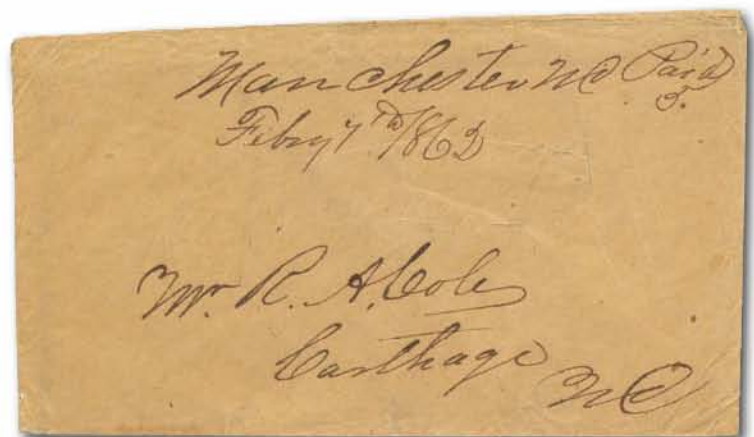 Manchester NC Paid
5.
Feby 7th 1862
Mr. R. A. Cole
Carthage
NC